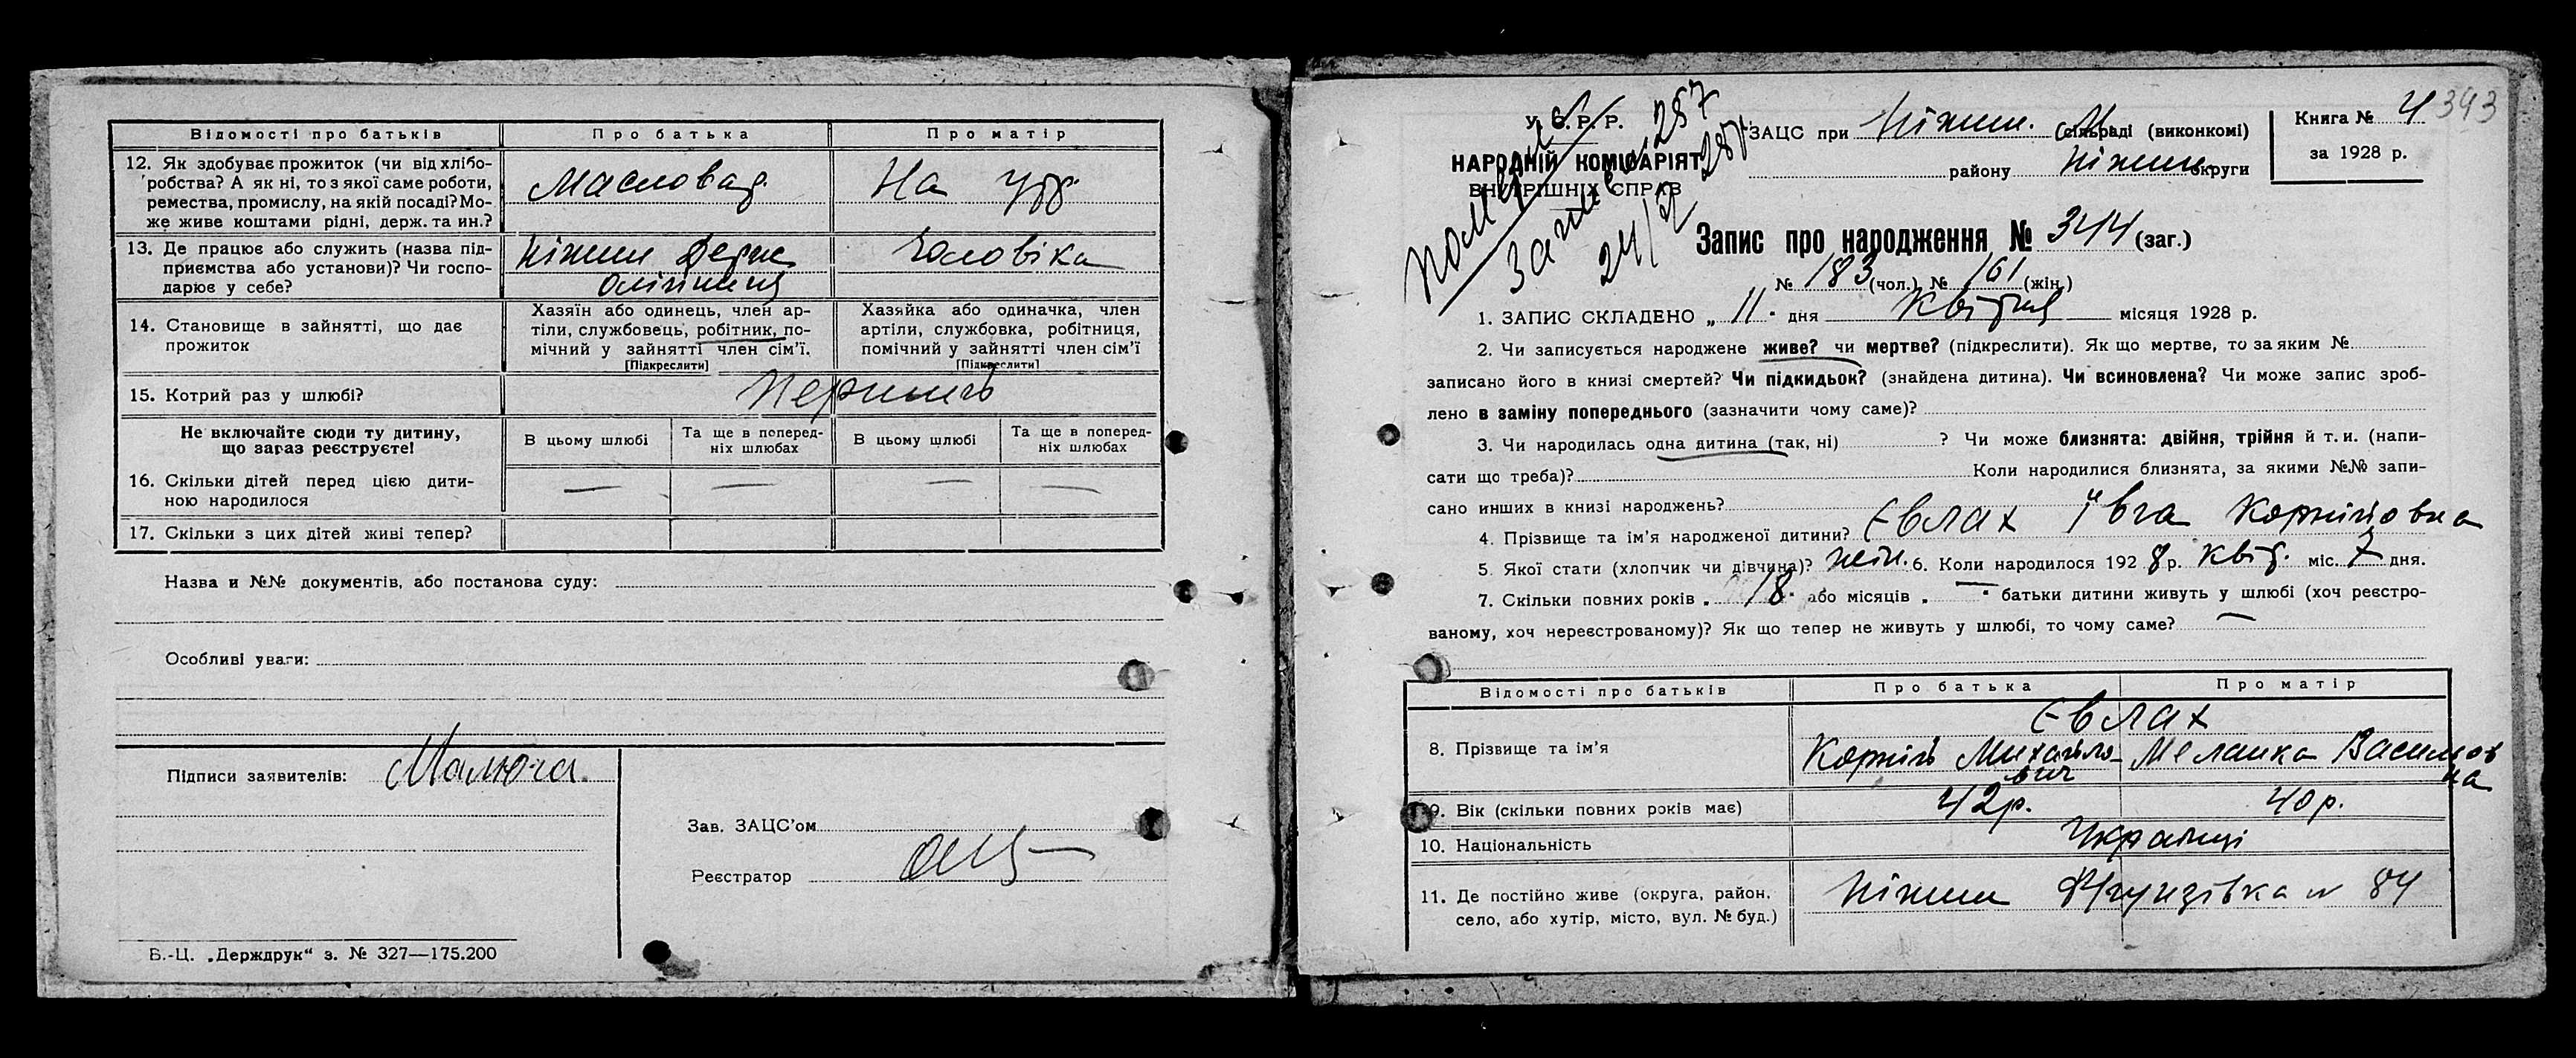 Відомості про батьків Про батька Про матір
12. Як здобуває прожиток (чи від хлібо-
робства? А як ні, то з якої саме роботи,
ремества, промислу, на якій посаді? Мо-
же живе коштами рідні, держ. та ин.?
На
13. Де працює або служить (назва під-
приємства або установи)? Чи госпо-
дарює у себе?
Ніжин Держ
Чоловіка
14. Становище в зайнятті, що дає
прожиток
Хазяїн або одинець, член ар-
тіли, службовець, робітник, по-
мічний у зайнятті член сім'ї.
[Підкреслити]
Хазяйка або одиначка, член
артіли, службовка, робітниця,
помічний у зайнятті член сім'ї
[Підкреслити]
15. Котрий раз у шлюбі?
Не включайте сюди ту дитину,
що зараз реєструєте!
В цьому шлюбі
Та ще в поперед-
ніх шлюбах
В цьому шлюбі
Та ще в поперед-
ніх шлюбах
16. Скільки дітей перед цією дити-
ною народилося
— — — —
17. Скільки з цих дітей живі тепер?
Назва и №№ документів, або постанова суду:
Особливі уваги:
Підписи заявителів: Малюга
Зав. ЗАЦС'ом
Реєстратор
В.-Ц. „Держдрук“ з. № 327—175.200
У. С. Р. Р.
НАРОДНІЙ КОМІСАРІЯТ
ВНУТРІШНІХ СПРАВ
287
ЗАЦС при Ніжин. (сільраді (виконкомі)
району Ніжин округи
Книга № 4
за 1928 р.
393
Запис про народження № 344 (заг.)
№ 183 (чол.) № 161 (жін.)
1. ЗАПИС СКЛАДЕНО „ 11 " дня Квітня місяця 1928 р.
2. Чи записується народжене живе? чи мертве? (підкреслити). Як що мертве, то за яким №
записано його в книзі смертей? Чи підкидьок? (знайдена дитина). Чи всиновлена? Чи може запис зроб-
лено в заміну попереднього (зазначити чому саме)?
3. Чи народилась одна дитина (так, ні) ? Чи може близнята: двійня, трійня й т. и. (напи-
сати що треба)? Коли народилися близнята, за якими №№ запи-
сано инших в книзі народжень?
4. Прізвище та ім'я народженої дитини? Євлах Ївга Корніївна
5. Якої стати (хлопчик чи дівчина)? жін. 6. Коли народилося 1928 р. квіт. міс. 7 дня.
7. Скільки повних років „ 18 " або місяців „ — " батьки дитини живуть у шлюбі (хоч реєстро-
ваному, хоч нереєстрованому)? Як що тепер не живуть у шлюбі, то чому саме? —
Відомості про батьків Про батька Про матір
Євлах
8. Прізвище та ім'я
Корній Михайло-
вич
Меланка Васильов
на
9. Вік (скільки повних років має) 42 р. 40 р.
10. Національність Українці
11. Де постійно живе (округа, район,
село, або хутір, місто, вул. № буд.)
Ніжин 84